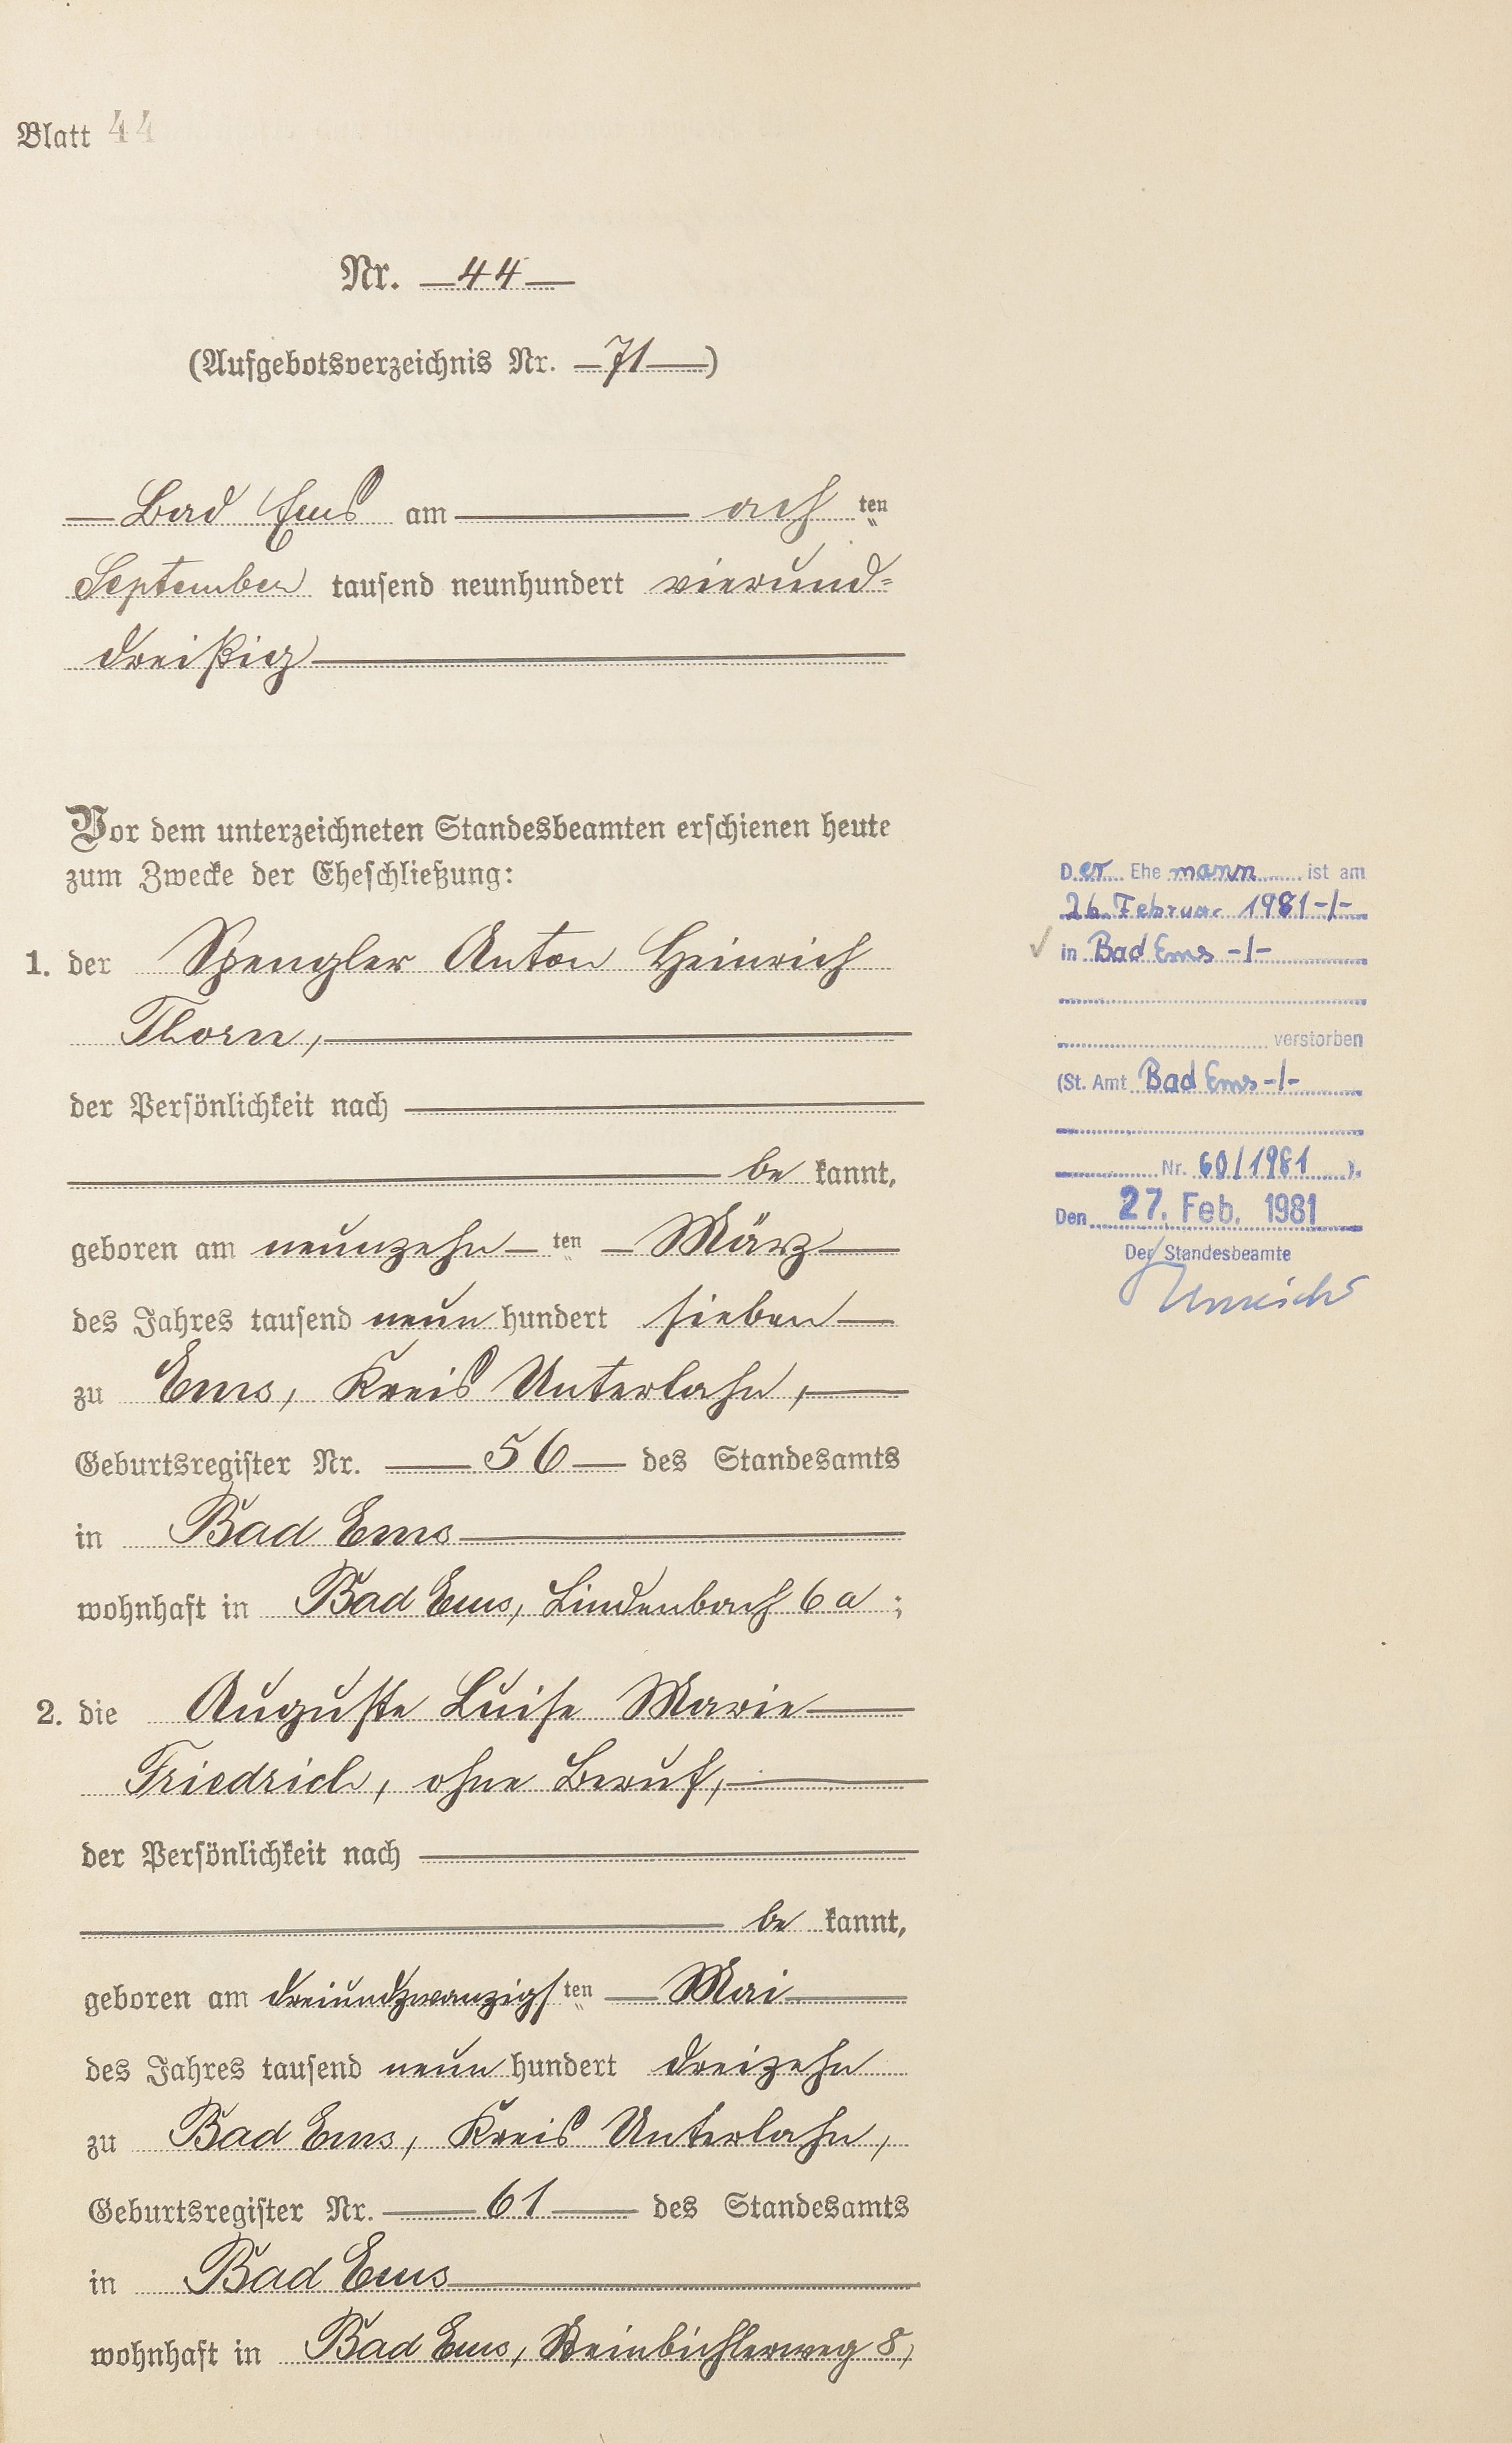 Blatt 44
Nr. 44
(Aufgebotsverzeichnis Nr. 71)
Bad Ems am acht ten
September tausend neunhundert vierund=
dreißig
Vor dem unterzeichneten Standesbeamten erschienen heute
zum Zwecke der Eheschließung:
1. der Spengler Anton Heinrich
Thorn,
der Persönlichkeit nach
be kannt,
geboren am neunzehn ten März
des Jahres tausend neun hundert sieben
zu Ems, Kreis Unterlahn,
Geburtsregister Nr. 56 des Standesamts
in Bad Ems
wohnhaft in Bad Ems, Lindenbach 6a;
2. die Auguste Luise Marie
Friedrich, ohne Beruf,
der Persönlichkeit nach
be kannt,
geboren am dreiundzwanzigs ten Mai
des Jahres tausend neun hundert dreizehn
zu Bad Ems, Kreis Unterlahn,
Geburtsregister Nr. 61 des Standesamts
in Bad Ems
wohnhaft in Bad Ems, 8,
Der Ehe mann ist am
26. Februar 1981 -/-
in Bad Ems -/-
verstorben
(St. Amt Bad Ems -/-
Nr. 60/1981 ).
Den 27. Feb. 1981
Der Standesbeamte